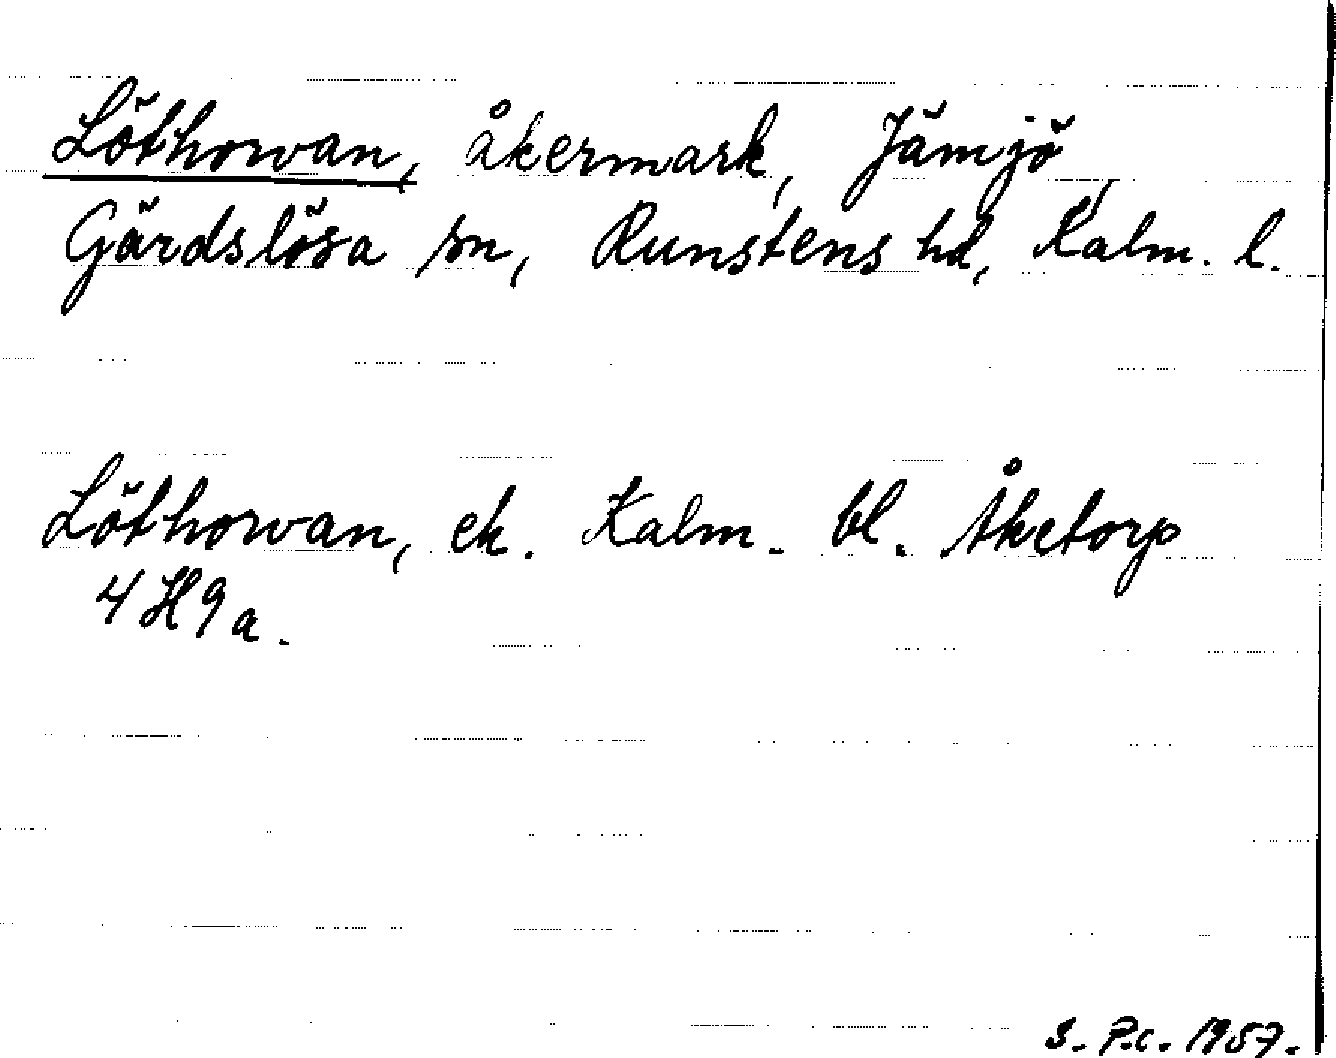 Löthowan, åkermark, Jämjö,
Gärdslösa sn, Runstens hd, Kalm. l.
Löthowan, ek. Kalm. bl. Åketorp
4 H 9 a.
S. P.c. 1957.